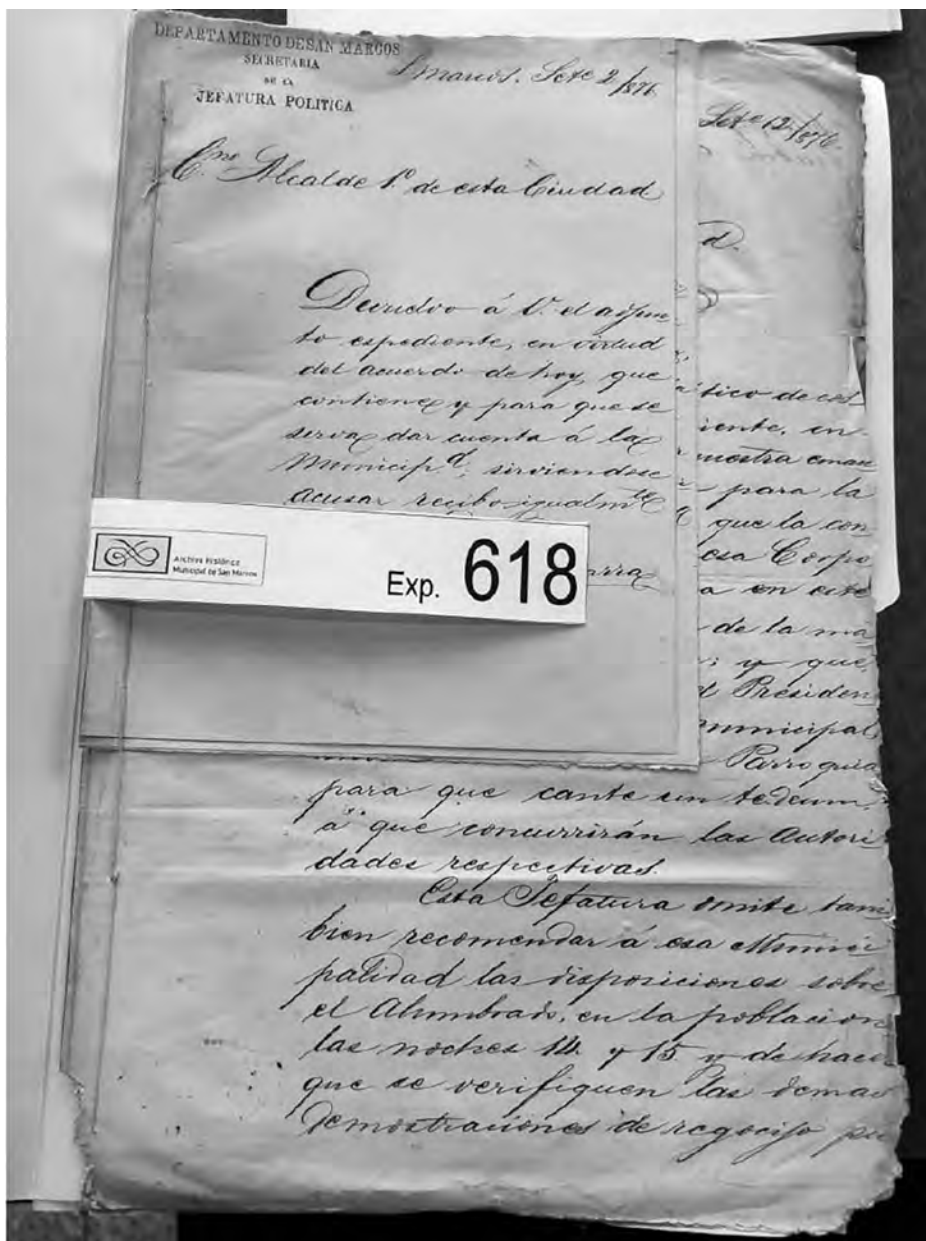 DEPARTAMENTO DE SAN MARCOS
SECRETARIA
DE LA
JEFATURA POLITICA
S. Marcos. Sete 2/876
Cno. Alcalde 1º de esta Ciudad
Devuelvo á V. el adjun
to espediente, en virtud
del acuerdo de hoy, que
contiene y para que se
serva dar cuenta á la
Municipd. sirviendose
acusar recibo igualmte
Archivo Histórico
Municipal de San Marcos
Exp. 618
Sete 12/876
d.
tico de
iente, en
nuestra eman
para la
que la con
esa Corpo
a en este
de la ma
; y que
l Presiden
municipal
Parroquia
para que cante un tedeum,
á que concurrirán las Autori
dades respectivas.
Esta Jefatura omite tam
bien recomendar á esa Munici
palidad las disposiciones sobre
el Alumbrado, en la poblacion
las noches 14. y 15 y de hacer
que se verifiquen las demas
demostraciones de regocijo pu